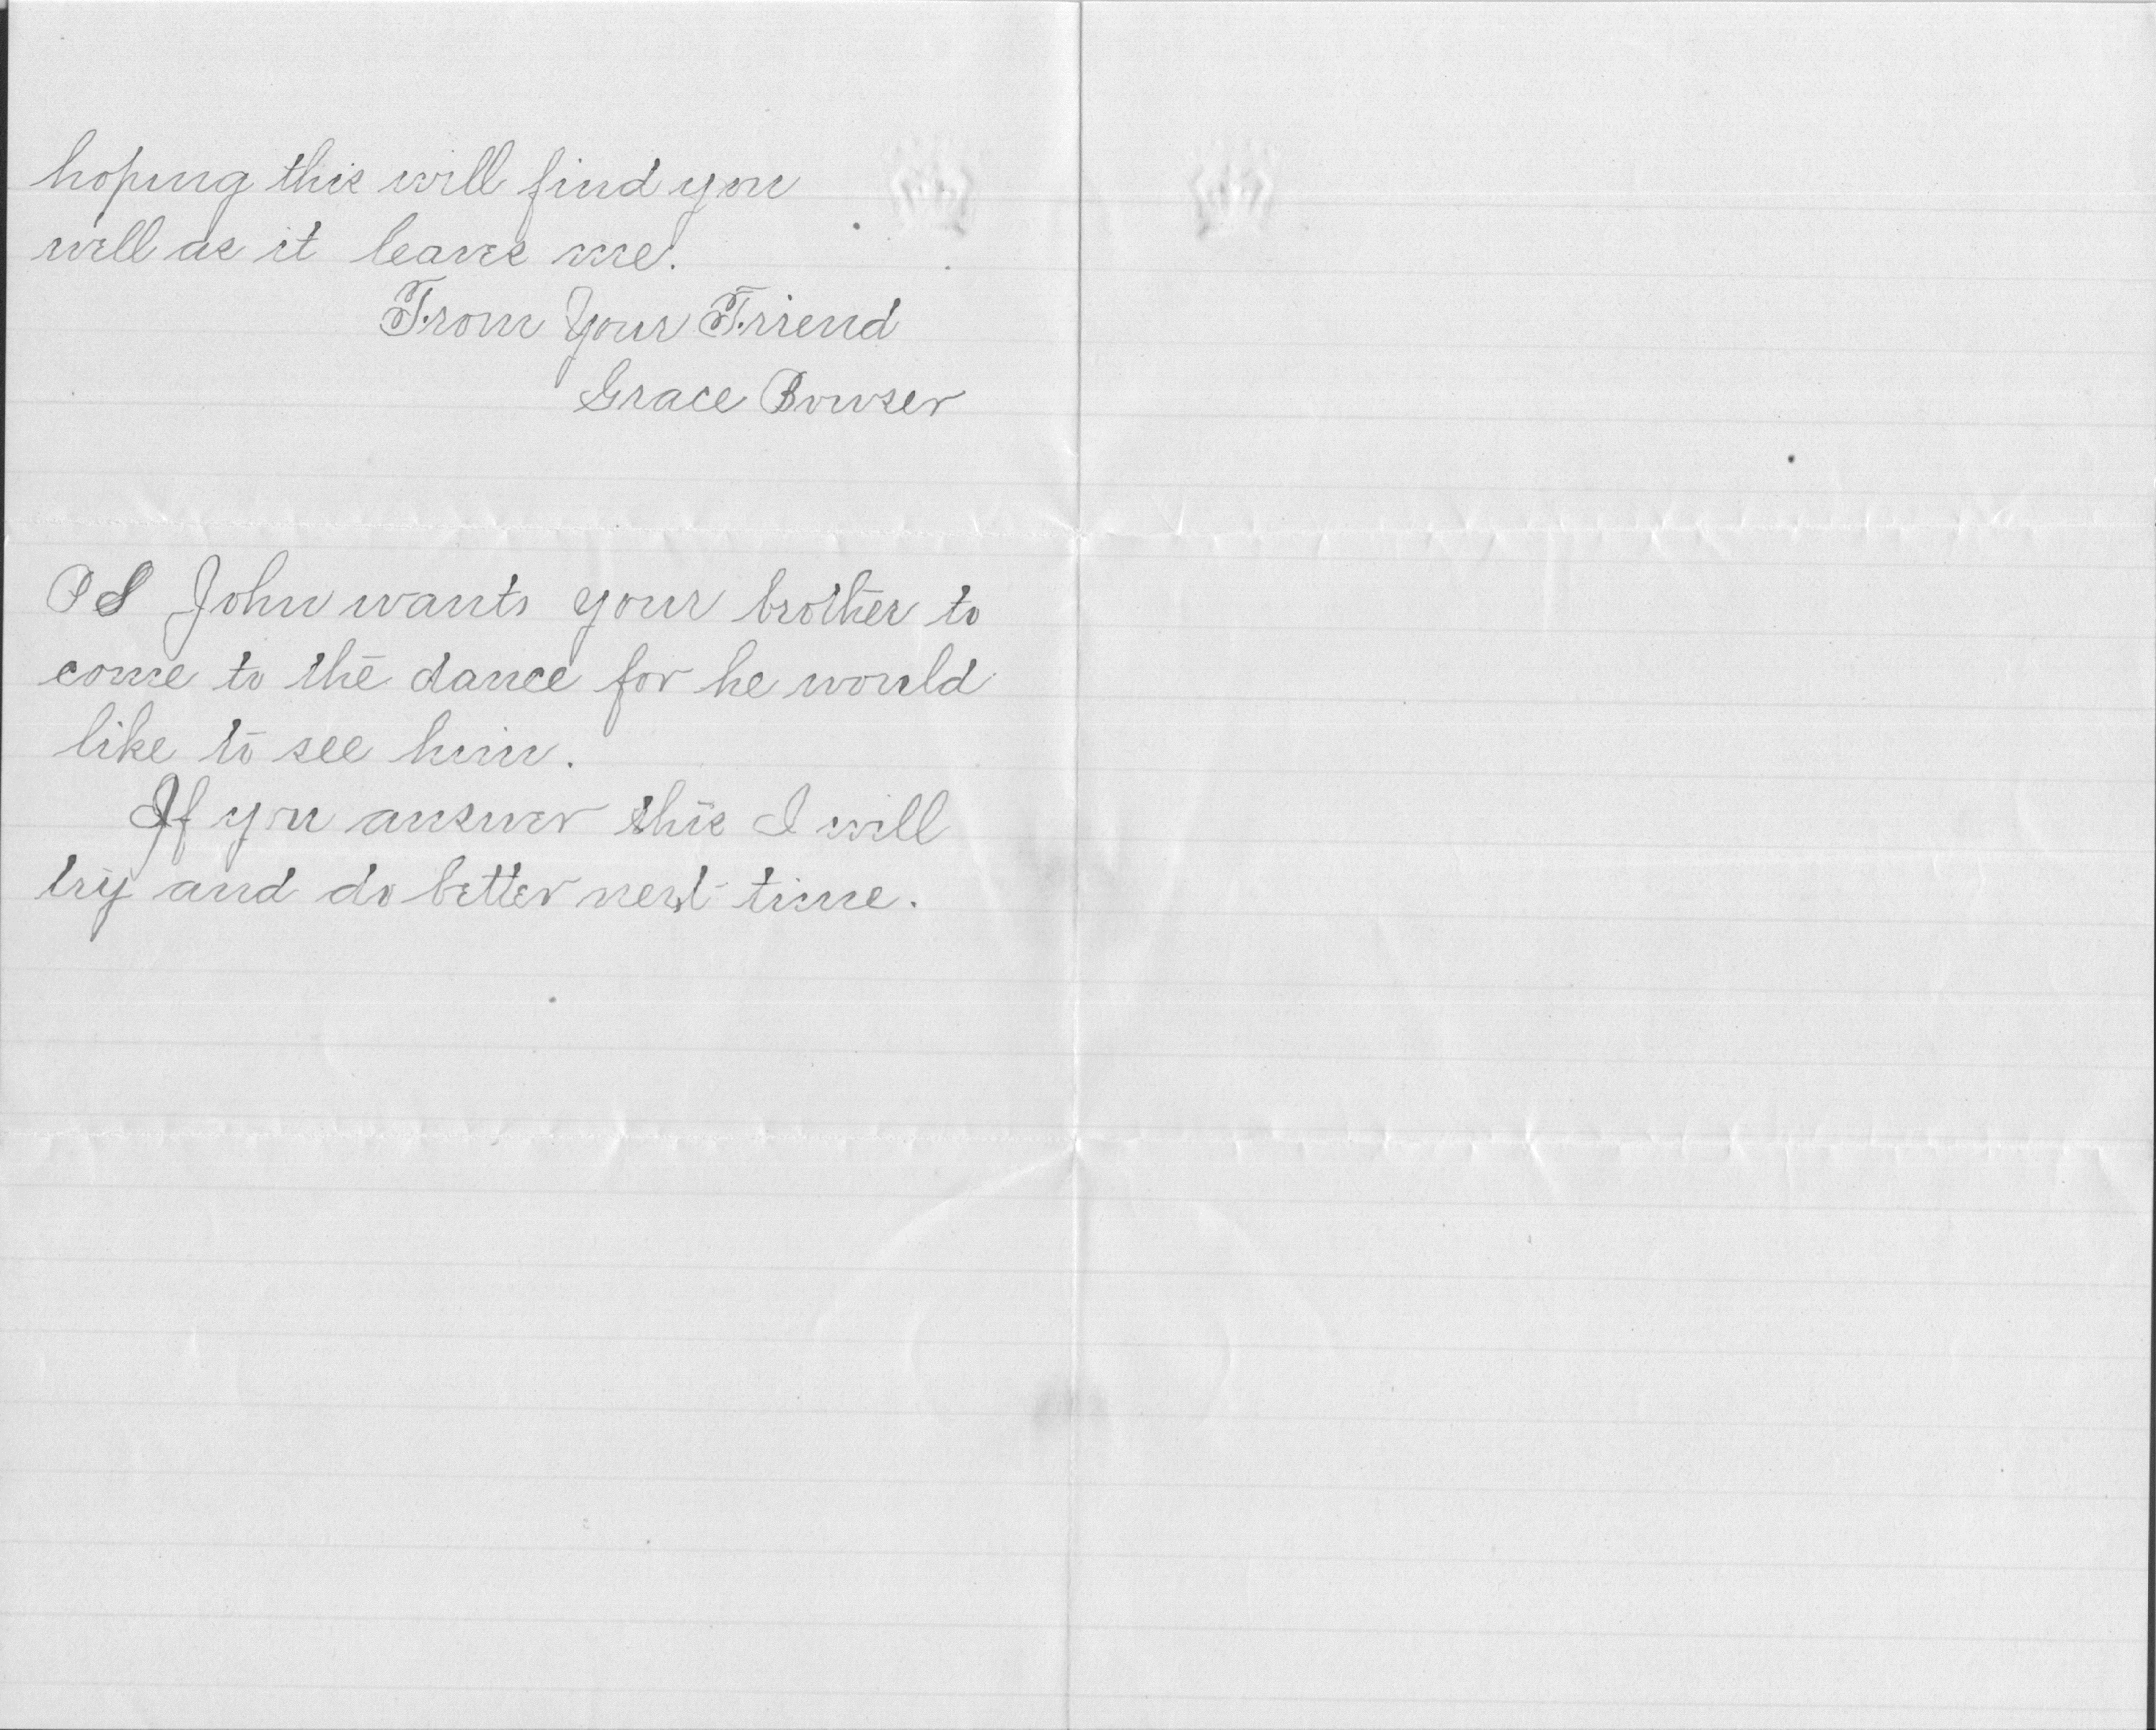 hoping this will find you
well as it leaves me.
From Your Friend
Grace Bowser
PS John wants your brother to
come to the dance for he would
like to see him.
If you answer this I will
try and do better next time.